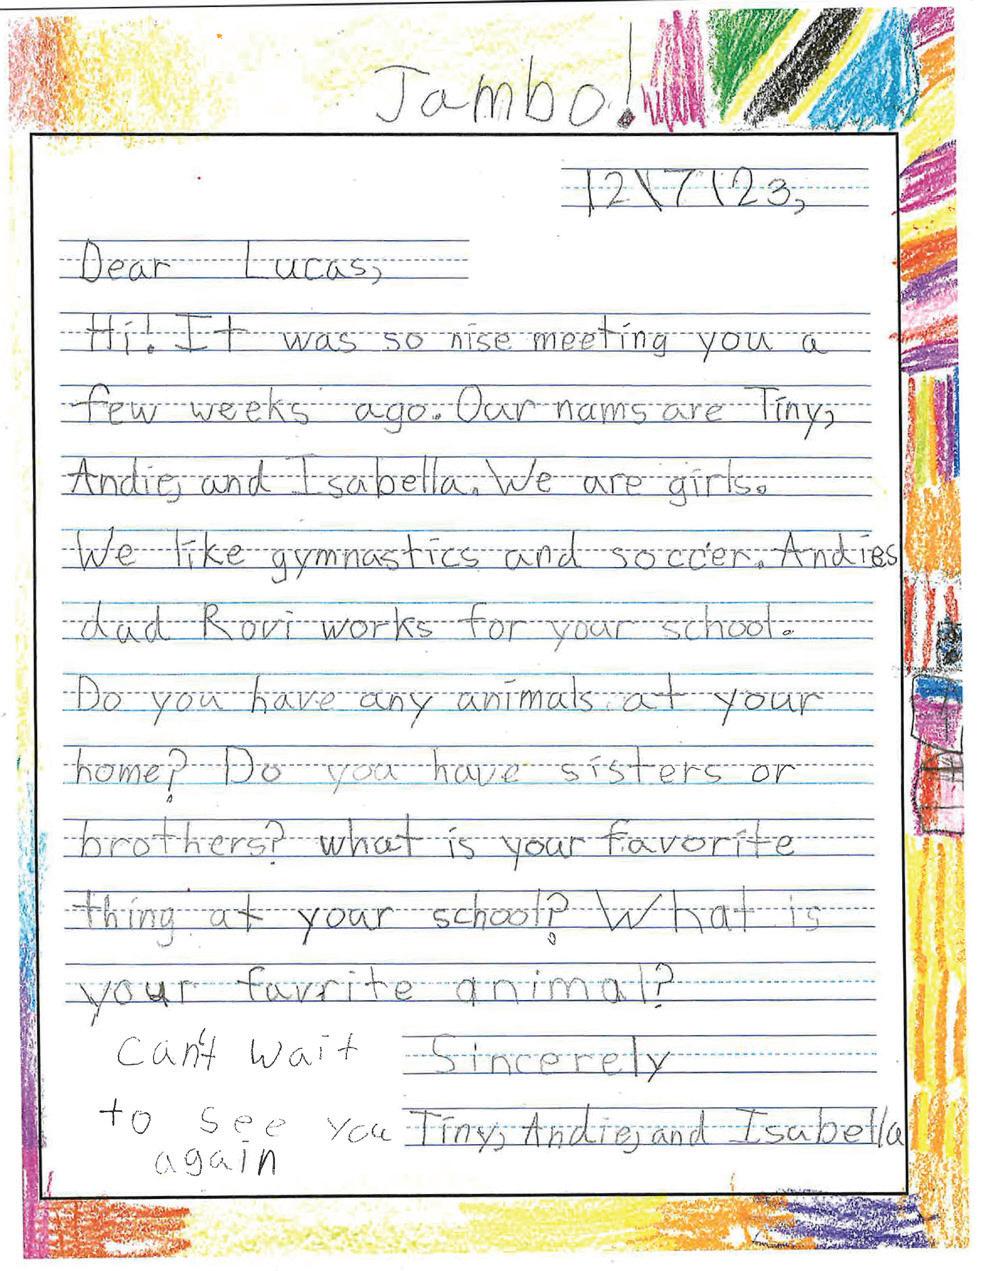 Jambo!
12\7\23,
Dear Lucas,
Hi! It was so nise meeting you a
few weeks ago. Our nams are Tiny,
Andie, and Isabella. We are girls.
We like gymnastics and soccer. Andies
dad Rovi works for your school.
Do you have any animals at your
home? Do you have sisters or
brothers? what is your favorite
thing at your school? What is
your favrite animal?
can't wait
to see you
again
Sincerely
Tiny, Andie, and Isabella